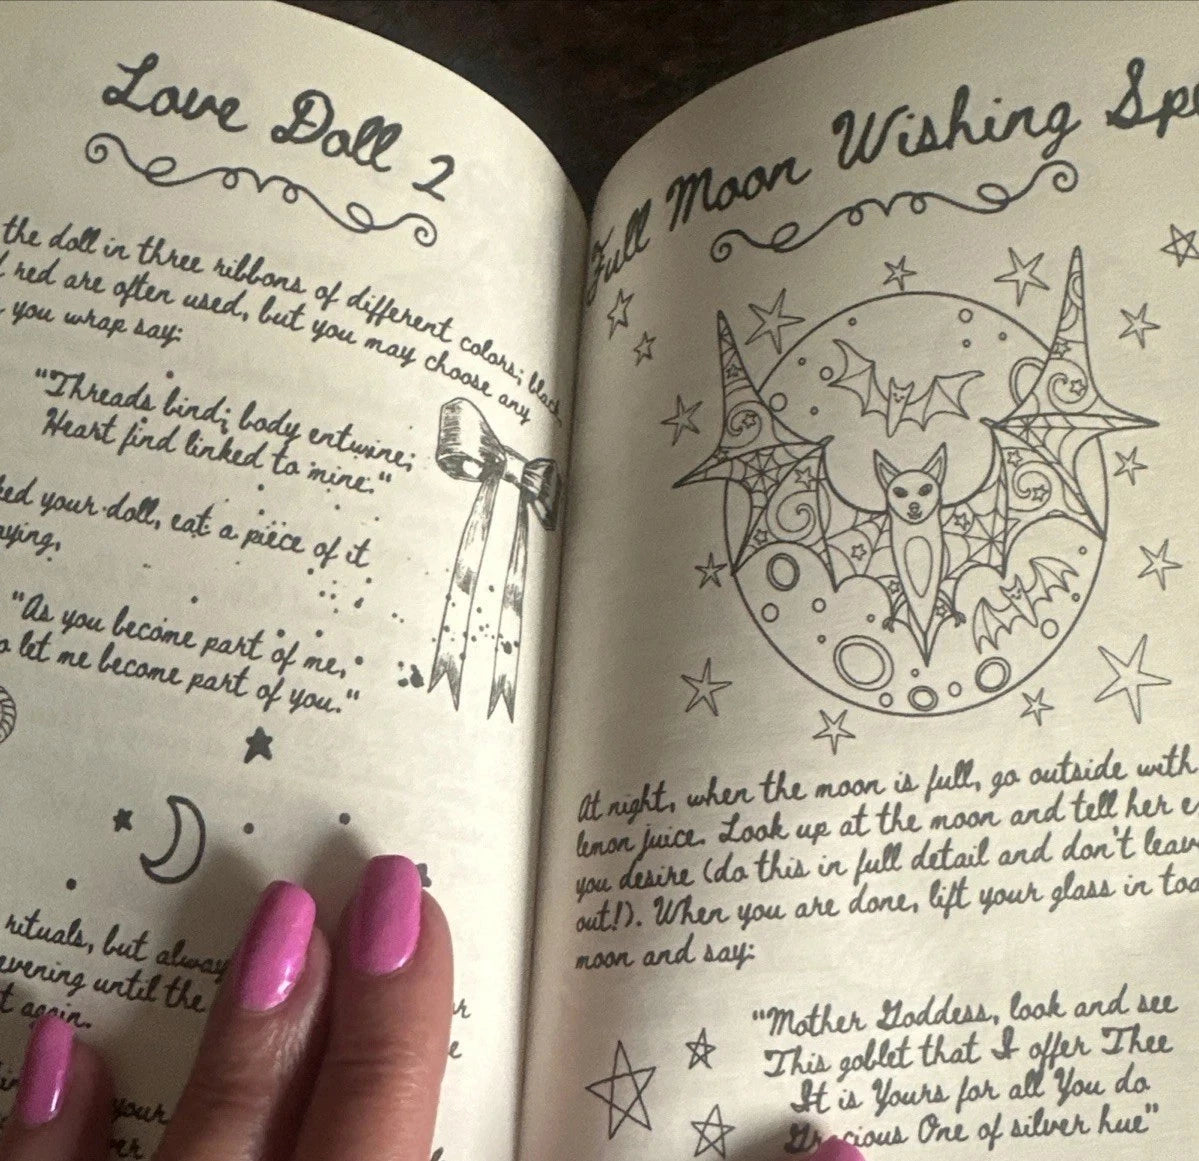 Love Doll 2
the doll in three ribbons of different colors; black,
red are often used, but you may choose any
you wrap say:
"Threads bind; body entwine;
Heart find linked to mine."
your doll, eat a piece of it
"As you become part of me,
let me become part of you."
rituals, but
evening until the
again.
your
Full Moon Wishing
At night, when the moon is full, go outside with
lemon juice. Look up at the moon and tell her
you desire (do this in full detail and don't
out!). When you are done, lift your glass in
moon and say:
"Mother Goddess, look and see
This goblet that I offer Thee
It is Yours for all You do
Gracious One of silver hue"